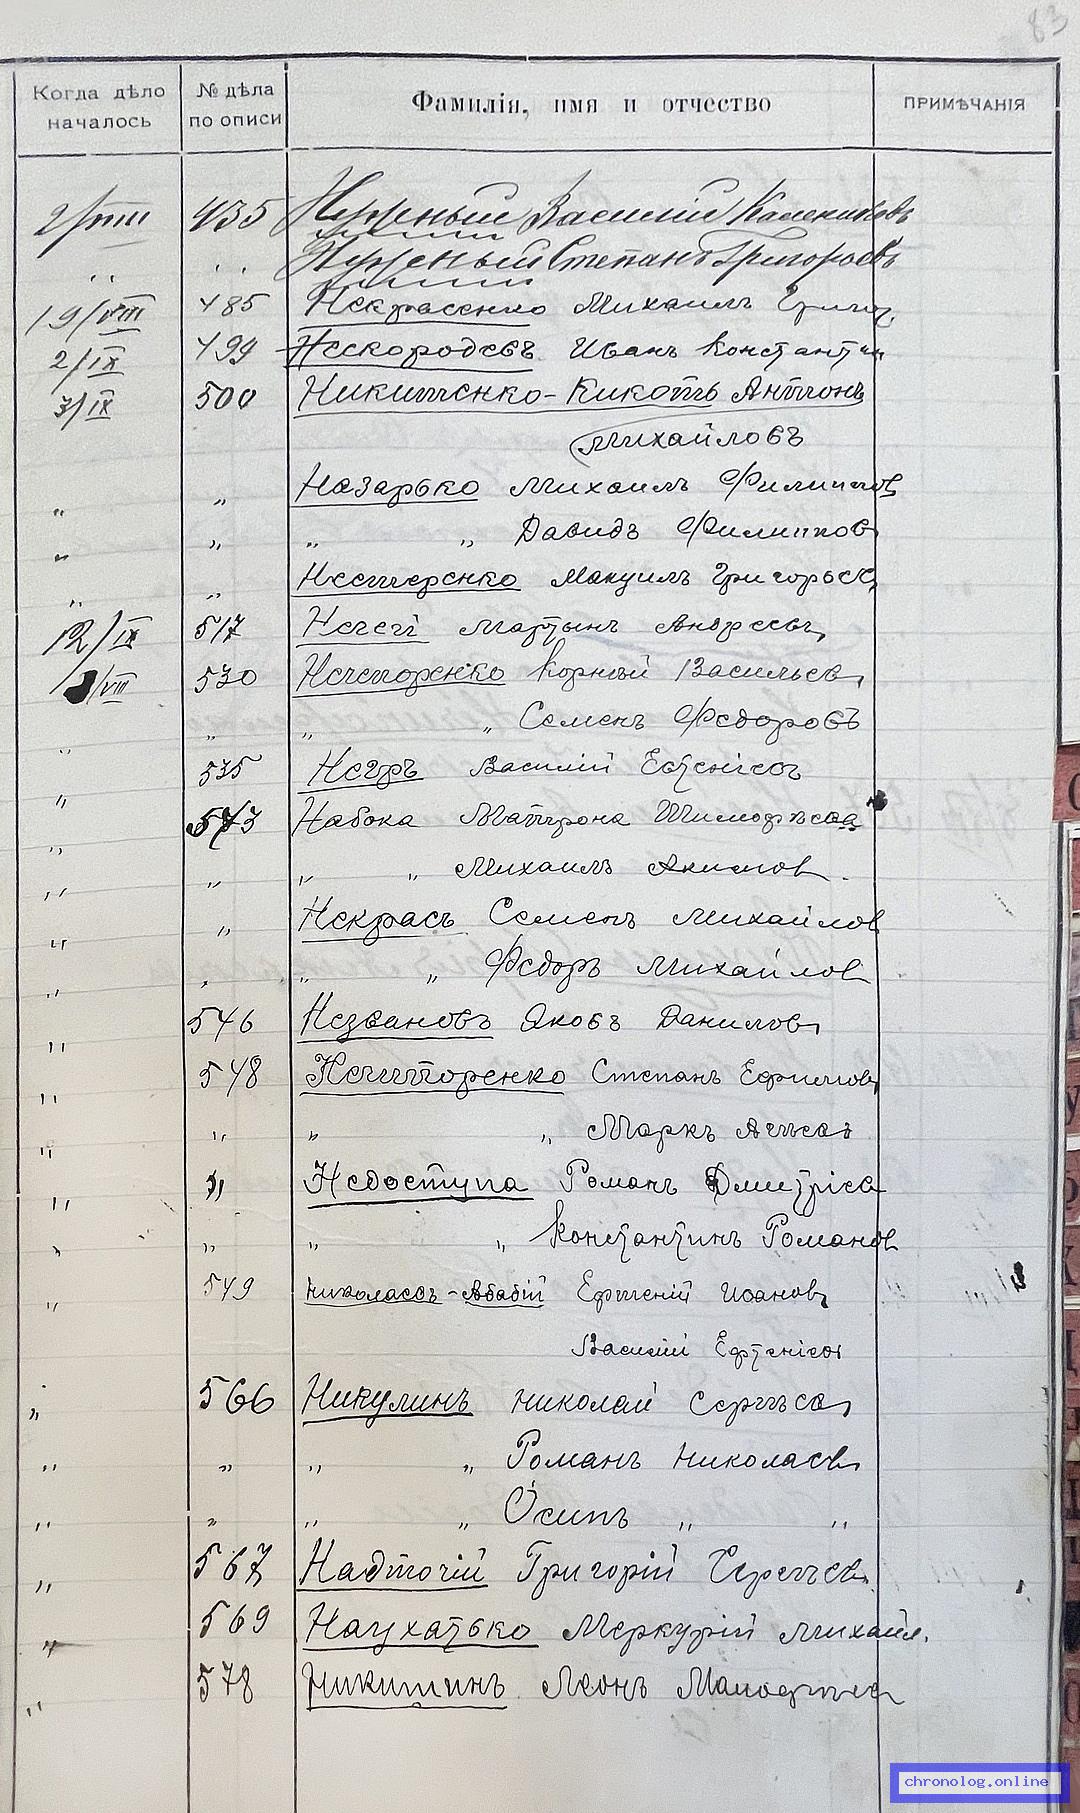 83
Когда дѣло началось № дѣла по описи Фамилія, имя и отчество ПРИМѢЧАНІЯ
2/VIII 435 Нужный Василій Калениковъ
" " Нужный Степанъ Григорьевъ
19/VIII 485 Некрасенко Михаилъ Григор.
2/IX 499 Нескородевъ Иванъ Константин
3/IX 500 Никитенко-Кикоть Антонъ
Михайловъ
" " Назарько Михаилъ Филиппов
" " " " Давидъ Филиппов
" " Нестеренко Мануилъ Григорьев
12/IX 517 Негей Мартынъ Андреевъ
/VIII 530 Нечепоренко Корній Васильев
" " " " Семенъ Федоровъ
" 535 Негръ Василій Евгеніев
" 543 Набока Матрона Тимофѣева
" " " " Михаилъ Акимов
" " Некрасъ Семенъ Михайлов
" " " " Федоръ Михайлов
" 546 Незвановъ Яковъ Данилов
" 548 Нечипоренко Степанъ Ефимов
" " " " Маркъ
" " Недоступа Романъ Дмитріев
" " " " Константинъ Романов
" 549 Николаевъ-Абабій Евгеній Иванов
Василій Евгеніев
" 566 Никулинъ Николай Сергѣев
" " " " Романъ Николаев
" " " " Осипъ " "
" 567 Надточій Григорій Сергѣев.
" 569 Наухатько Меркурій Михайл.
" 578 Никитинъ Леонъ
chronolog.online